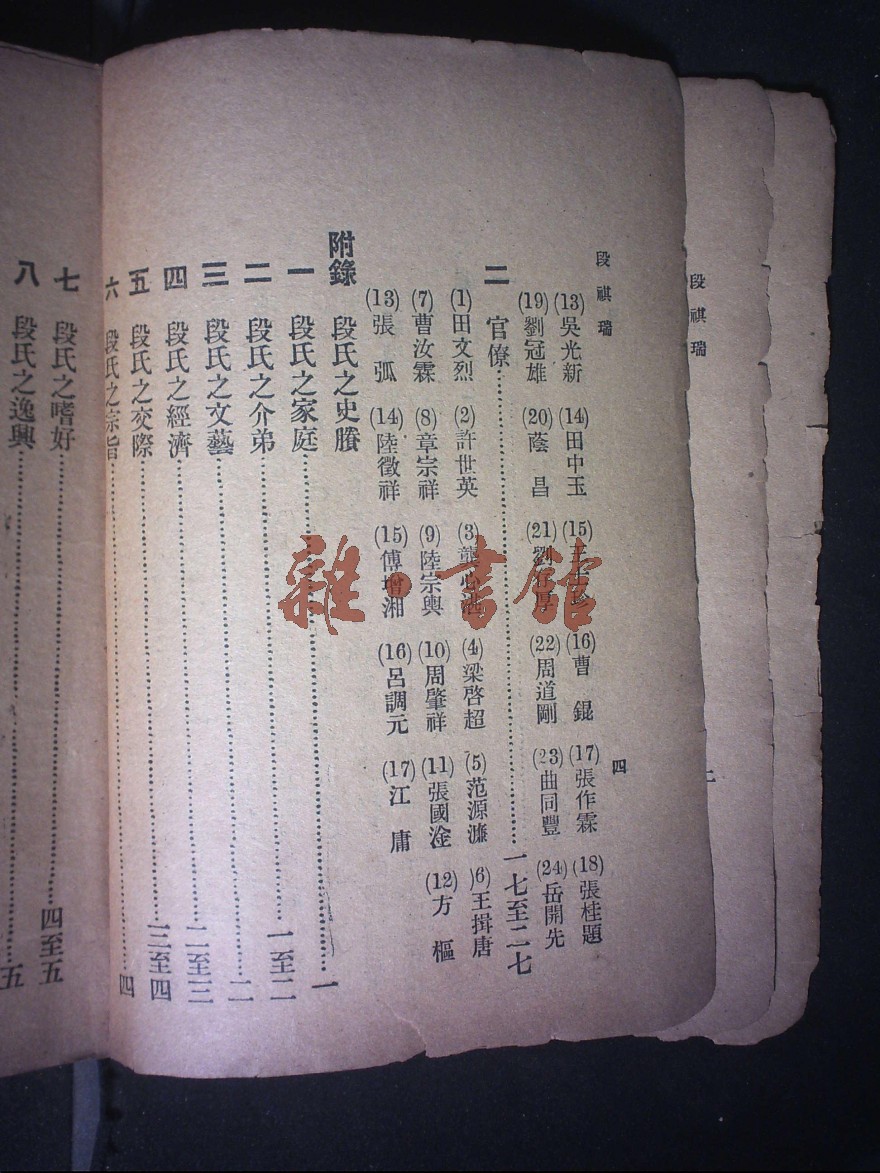 段祺瑞
段祺瑞 四
(13)吳光新 (14)田中玉 (15) (16)曹 錕 (17)張作霖 (18)張桂題
(19)劉冠雄 (20)蔭 昌 (21)劉 (22)周道剛 (23)曲同豐 (24)岳開先
二 官僚……一七至二七
(1)田文烈 (2)許世英 (3)龔心湛 (4)梁啓超 (5)范源濂 (6)王揖唐
(7)曹汝霖 (8)章宗祥 (9)陸宗輿 (10)周肇祥 (11)張國淦 (12)方 樞
(13)張 弧 (14)陸徵祥 (15)傅增湘 (16)呂調元 (17)江 庸
附錄 段氏之史賸
一 段氏之家庭……一
二 段氏之介弟……一至二
三 段氏之文藝……二
四 段氏之經濟……二至三
五 段氏之交際……三至四
六 段氏之宗旨……四
七 段氏之嗜好……四至五
八 段氏之逸興……五
雜·書館